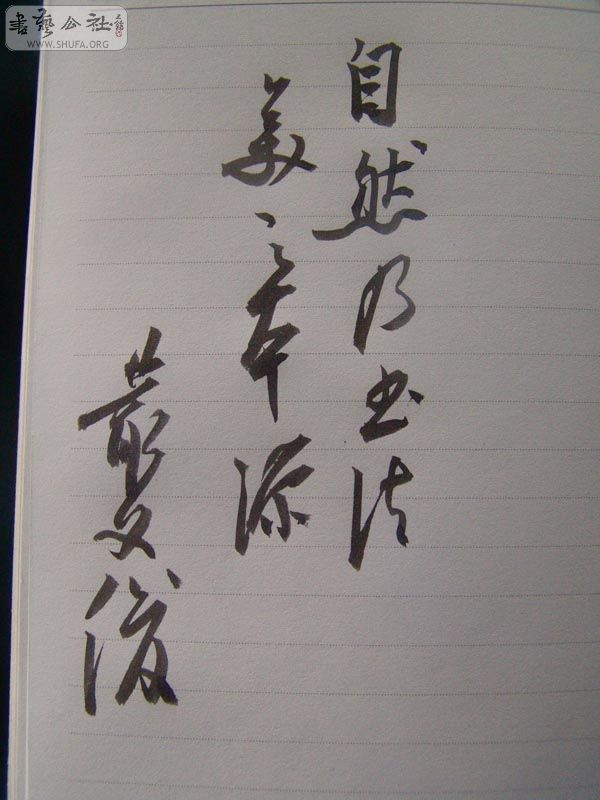 書藝公社
WWW.SHUFA.ORG
自然乃书法
美之本源
叢文俊